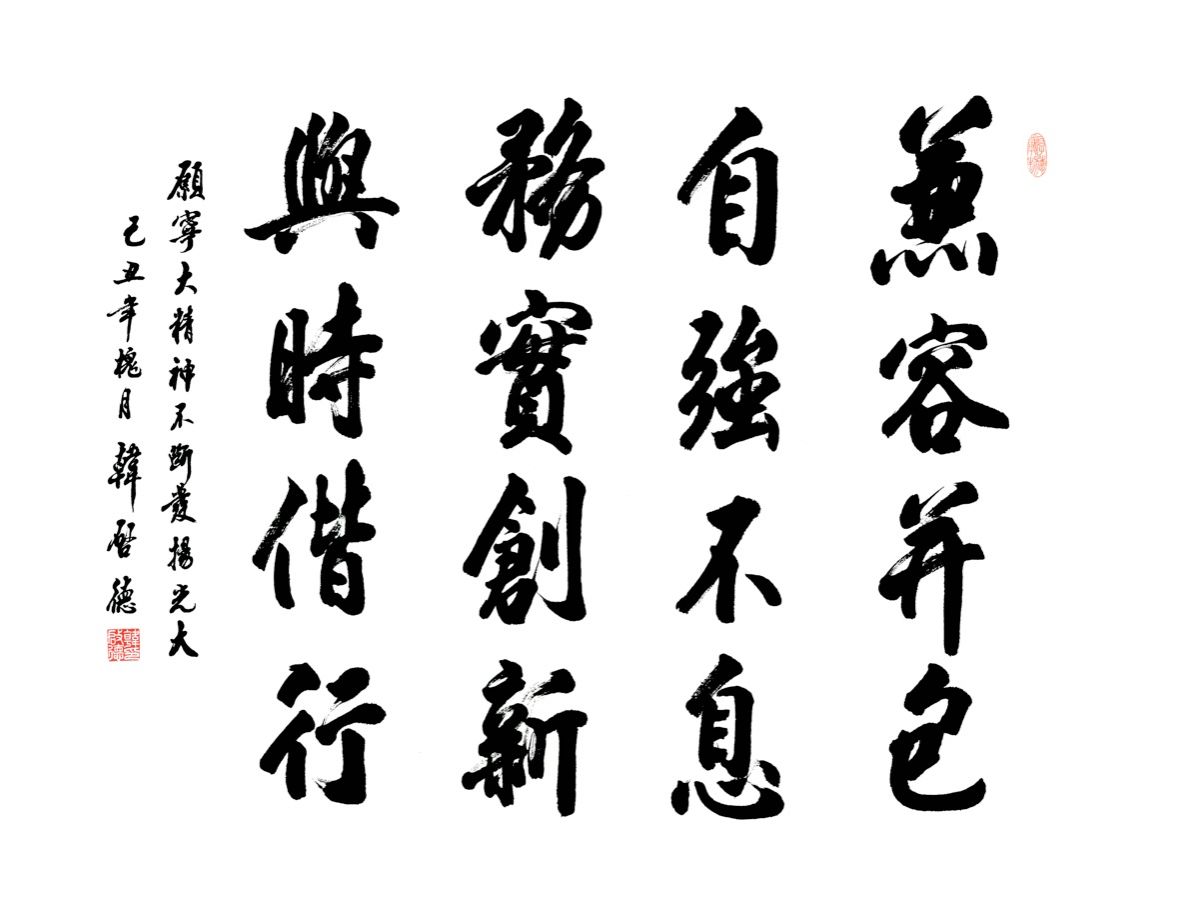 兼容并包
自強不息
務實創新
與時偕行
願寧大精神不斷發揚光大
己丑年槐月韓啓德